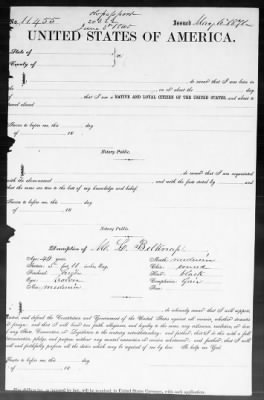 No. 11455
Issued May 6 1871
UNITED STATES OF AMERICA.
State of
County of
do swear that I was born in
on or about the day
that I am a NATIVE AND LOYAL CITIZEN OF THE UNITED STATES and about to
travel abroad
Sworn to before me, this day
of 18
Notary Public.
do swear that I am acquainted
with the above-named and with the facts stated by
that the same are true to the best of my knowledge and belief.
Sworn to before me, this day
of 18
Notary Public.
Description of M. L. Belknap
Age: 49 years
Mouth: medium
Stature: 5 feet 10 inches Eng.
Chin: round
Forehead: high
Hair: black
Eyes: brown
Complexion:
Nose: medium
Face:
do solemnly swear that I will support,
protect, and defend the Constitution and Government of the United States against all enemies, whether domestic
or foreign; and that I will bear true faith, allegiance, and loyalty to the same, any ordinance, resolution, or law
of any State, Convention, or Legislature to the contrary notwithstanding; and further, that I do this with a full
determination, pledge, and purpose, without any mental reservation or evasion whatsoever; and further, that I will
well and faithfully perform all the duties which may be required of me by law. So help me God.
Sworn to before me, this day
of 18